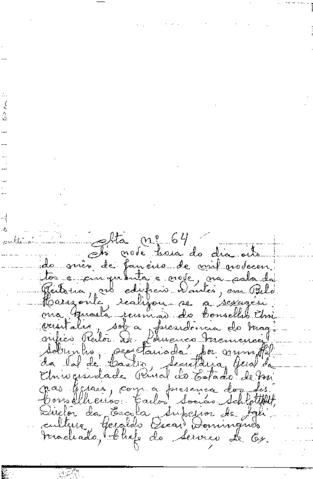 Ata n.º 64
Às nove horas do dia oito
do mês de Janeiro de mil novecen
tos e cinquenta e nove, na sala da
Reitoria, no edifício Dantés, em Belo
Horizonte, realizou-se a sexagési
ma quarta reunião do Conselho Uni
versitário, sob a presidência do Mag
nífico Reitor Dr. Lourenço Menicucci
Sobrinho, secretariada por mim,
da Val de Castro, Secretária Geral da
Universidade Rural do Estado de Mi
nas Gerais, com a presença dos srs.
Conselheiros: Carlos Socías Schlottfeldt,
Diretor da Escola Superior de Agri
cultura, Geraldo Oscar Domingues
Machado, Chefe do Serviço de Ex.